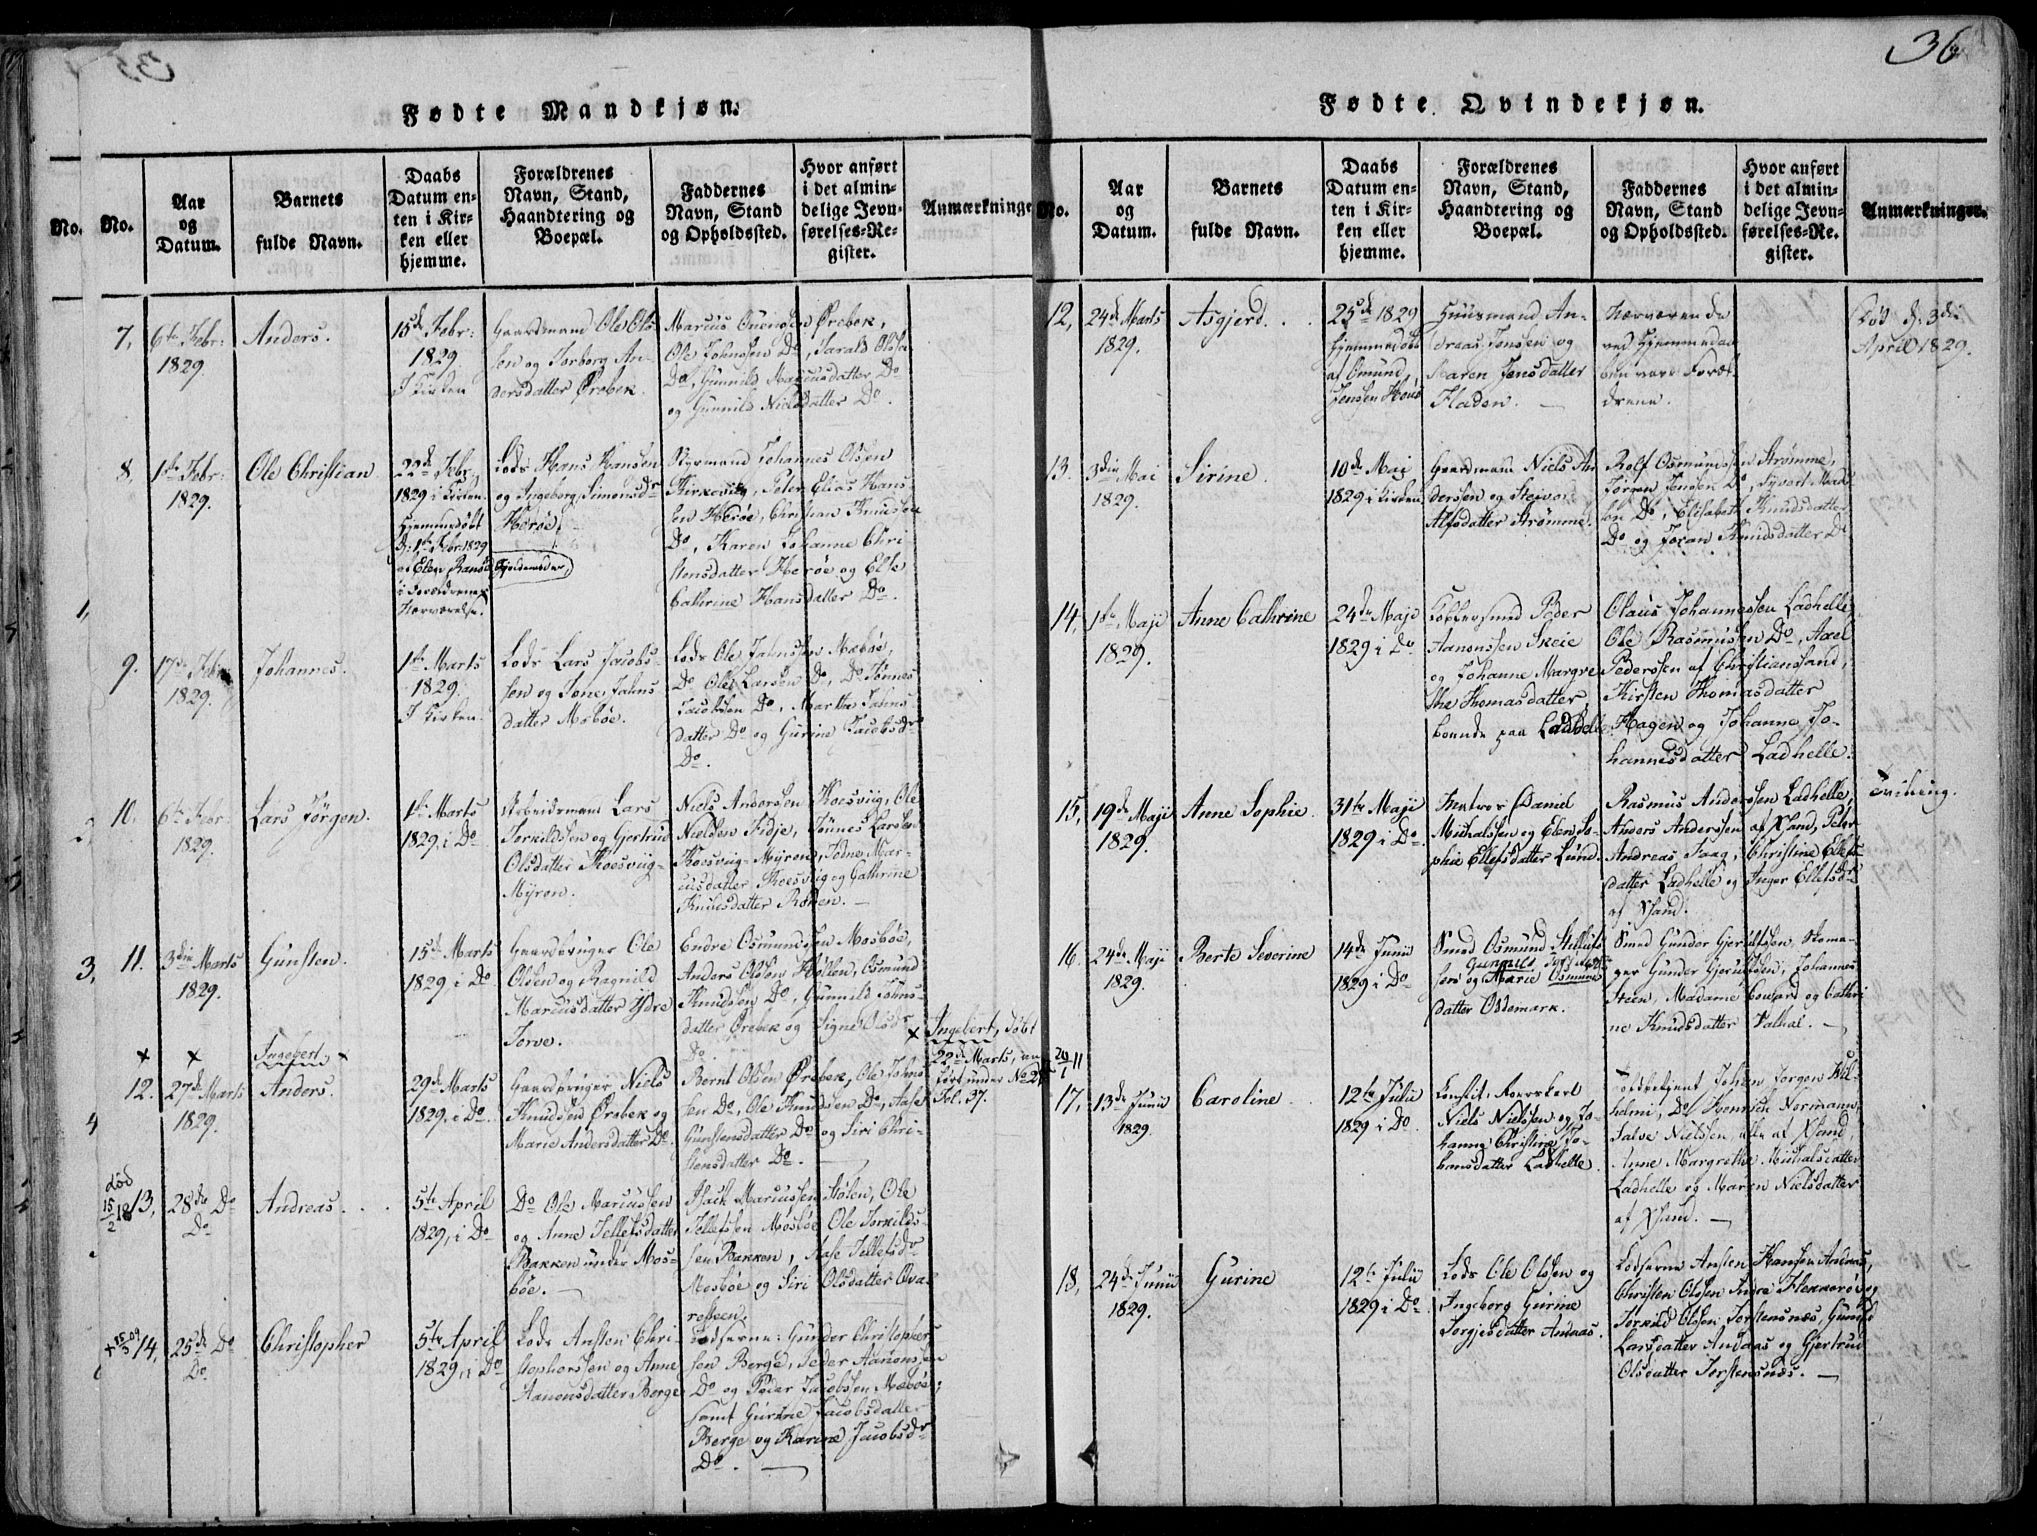 36
Fødte Mandkjøn.
No.
No.
Aar
og
Datum.
Barnets
fulde Navn.
Daabs
Datum en-
ten i Kir-
ken eller
hjemme.
Forældrenes
Navn, Stand,
Haandtering og
Boepæl.
Faddernes
Navn, Stand
og Opholdssted.
Hvor anført
i det almin-
delige Jevn-
førelses-Re-
gister.
Anmærkninge
7,
6te Febr:
1829
Anders.
15de Febr:
1829
I Kirken
Gaardmand Ole Ols
sen og Torborg An-
dersdatter Örebek.
Marcus Ouensen Örebek,
Ole Johnsen Do, Tarald Olsen
Do, Gunnild Marcusdatter Do
og Gunnild Nielsdatter Do.
8,
1ste Febr:
1829.
Ole Christian
22de Febr.
1829 i Kirken.
Hjemmedöbt
d: 1ste Febr: 1829
i Forældrenes
Nærværelse.
Lods Hans Hansen
og Ingeborg Simonsdr
Heröe.
Styrmand Johannes Olsen
Kirkeviig, Peter Elias Han-
sen Heröe, Christian Knudsen
Do, Karen Johanne Chri-
stensdatter Heröe og Else
Cathrine Hansdatter Do.
9.
17de Febr
1829.
Johannes.
1ste Marts
1829.
I Kirken.
Lods Lars Jacobs-
sen og Tone Jahns
datter Mæböe.
Lods Ole Jahnsen Mæböe,
Do Ole Larsen Do, Do Tönnes
Jacobsen Do, Marthe Jahns-
datter Do og Gurine Jacobsdr
Do.
10.
6te Febr:
1829.
Lars Jörgen.
1ste Marts
1829, i Do
Arbeidsmand Lars
Torkildsen og Gjertrud
Olsdatter Koesviig-
Myren.
Niels Andersen Koesviig, Ole
Nielsen Fidje, Tönnes Larsen
Koesviig-Myren, Tone Mar-
cusdatter Koesviig og Cathrine
Knudsdatter Roden.
3,
11.
3die Marts
1829.
Gunsten.
15de Marts
1829, i Do
Gaardbruger Ole
Olsen og Ragnild
Marcusdatter Ydre
Torve.
Endre Osmundsen Mosböe,
Anders Olsen Kollen, Osmund
Knudsen Do, Gunnild Johns-
datter Örebek og Signe Olsdr
Do.
× Ingebert, döbt
22de Marts, an
fört under No 2
Fol. 37.
× × Ingebert, ×
12.
27de Marts
1829.
Anders.
29de Marts
1829. i Do.
Gaardbruger Niels
Knudsen Örebek og
Marie Andersdatter Do.
Bernt Olsen Örebek, Ole Johns
sen Do, Ole Knudsen Do, Aase
Gunstensdatter Do og Siri Chri-
stensdatter Do.
4
död
15/2 18
13,
28de Do
Do
Andreas.
5te April
1829, i Do
Do Ole Marcussen
og Anne Tellefsdatter
Bakken under Mos-
böe.
Isach Marcussen Stolen, Ole
Tellefsen Mosböe, Ole Torkilds-
sen Bakken, Aase Tellefsdr
Mosböe og Siri Olsdatter Qva-
14,
25de Do
Do.
Christopher
5te April
1829, i Do
Lods Ansten Chri-
stophersen og Anne
Aanonsdatter Berge
Lodserne: Gunder Christopher-
sen Berge, Peder Aanonsen
Do og Peder Jacobsen Mæböe;
samt Gurine Jacobsdatter
Berge og Karine Jacobsdr
Do.
Fødte Qvindekjøn.
No.
Aar
og
Datum.
Barnets
fulde Navn.
Daabs
Datum en-
ten i Kir-
ken eller
hjemme.
Forældrenes
Navn, Stand,
Haandtering og
Boepæl.
Faddernes
Navn, Stand
og Opholdssted.
Hvor anført
i det almin-
delige Jevn-
førelses-Re-
gister.
Anmærkninger.
12,
24de Marts
1829.
Asgjerd.
25de 1829
Hjemmedöbt
af Omund
Jensen
Huusmand An-
dreas Jensen og
Karen Jensdatter
Fladen.
Nærværende
ved Hjemmedaa
ben vare Foræl-
drene.
Död d: 3die
April 1829.
13.
3die Mai
1829.
Sirine.
10de Maj
1829 i Kirken
Gaardmand Niels An
dersen og Steivor
Alfsdatter Strömme.
Rolf Osmundsen Strömme,
Jörgen Jensen Do, Syvert Mad-
sen Do, Elisabeth Knudsdatter
Do og Joran Knudsdatter Do
14,
1ste Maji
1829.
Anne Cathrine
24de Maji
1829 i Do
Kobbersmed Peder
Aanonsen Skeie
og Johanne Margre
the Thomasdatter,
boende paa Ladhelle
Olaus Johannesen Ladhelle
Ole Rasmusen Do, Axel
Pedersen af Christianssand,
Kirsten Thomasdatter
Hagen og Johanne Jo-
hannesdatter Ladhelle.
15,
19de Maji
1829.
Anne Sophie.
31te Maji
1829 i Do.
Matros Daniel
Michalsen og Elen So-
phie Ellefsdatter Lund.
Rasmus Andersen Ladhelle,
Anders Andersen af Xsand, Peter
Andreas Faag, Christine Ellefs
datter Ladhelle og Inger Ellefsdr
af Xsand.
× Tvilling.
16.
24de Maji
1829.
Berte Severine
14de Junii
1829 i Do
Smed Osmund Stillufs
sen og Marie Osmunds
Gunnild
datter Odemark.
Smed Gunder Gjerulfsen, Skoma-
ger Gunder Gjerulfsen, Johannes
Steen, Madame Coward og Cathri
ne Knudsdatter Valhal.
17,
13de Junii
1829.
Caroline
12te Julii
1829 i Do.
Niels Nielsen og Jo-
hanne Christine Jo-
hansdatter Ladhelle.
Johan Jörgen Wil-
helmi, Do Henrich Normann,
Salve Nielsen, alle af Xsand,
Anne Margrethe Michalsdatter
Ladhelle og Maren Nielsdatter
af Xsand.
18,
24de Junii
1829.
Gurine
12te Julii
1829 i Do.
Lods Ole Olsen og
Ingeborg Gurine
Torgiesdatter Andaas.
Lodserne Ansten Hansen Andaas,
Christen Olsen Indre Flekkeröe og
Torkild Olsen Torstensnæs, Gunild
Larsdatter Andaas og Gjertrud
Olsdatter Torstensnæs.